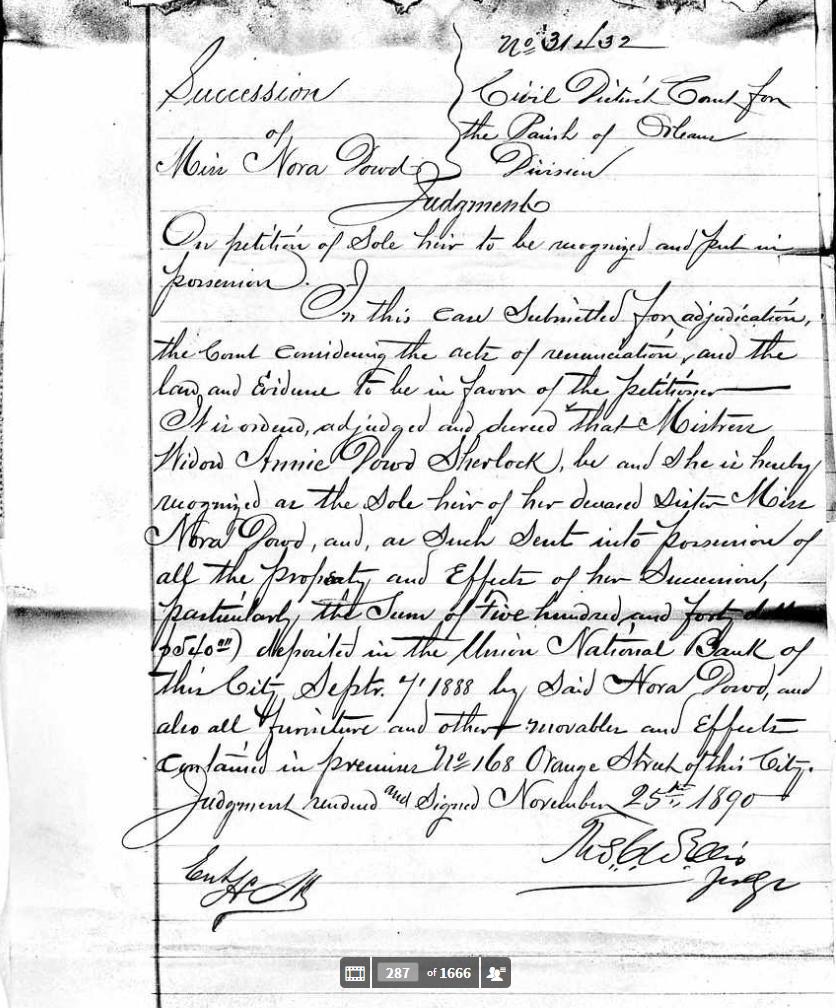 No 31432
Succession
of
Miss Nora Dowd
Civil District Court for
the Parish of Orleans
Division
Judgment
On petition of Sole heir to be recognized and put in
possession.
In this case Submitted for adjudication,
the Court considering the acts of renunciation, and the
law and Evidence to be in favor of the petitioner
It is ordered, adjudged and decreed that Mistress
Widow Annie Dowd Sherlock, be and She is hereby
recognized as the Sole heir of her deceased Sister Miss
Nora Dowd, and, as Such Sent into possession of
all the property and Effects of her Succession,
particularly the Sum of Five hundred and forty
$540.00) deposited in the Union National Bank of
this City Septr. 7' 1888 by Said Nora Dowd, and
also all furniture and other movables and Effects
contained in premises No 168 Orange Street of this City.
Judgment rendered and Signed November 25th, 1890
Judge
Ent
287 of 1666